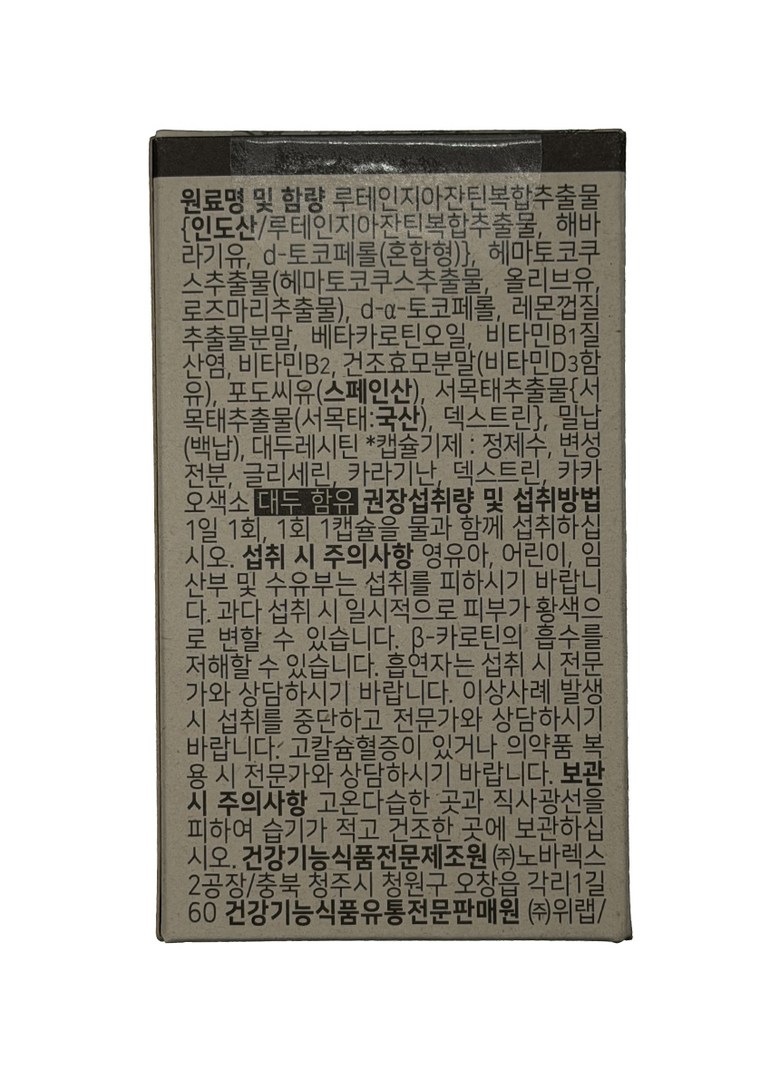 원료명 및 함량 루테인지아잔틴복합추출물
{인도산/루테인지아잔틴복합추출물, 해바
라기유, d-토코페롤(혼합형)}, 헤마토코쿠
스추출물(헤마토코쿠스추출물, 올리브유,
로즈마리추출물), d-α-토코페롤, 레몬껍질
추출물분말, 베타카로틴오일, 비타민B1질
산염, 비타민B2, 건조효모분말(비타민D3함
유), 포도씨유(스페인산), 서목태추출물{서
목태추출물(서목태:국산), 덱스트린}, 밀납
(백납), 대두레시틴 *캡슐기제 : 정제수, 변성
전분, 글리세린, 카라기난, 덱스트린, 카카
오색소 대두 함유 권장섭취량 및 섭취방법
1일 1회, 1회 1캡슐을 물과 함께 섭취하십
시오. 섭취 시 주의사항 영유아, 어린이, 임
산부 및 수유부는 섭취를 피하시기 바랍니
다. 과다 섭취 시 일시적으로 피부가 황색으
로 변할 수 있습니다. β-카로틴의 흡수를
저해할 수 있습니다. 흡연자는 섭취 시 전문
가와 상담하시기 바랍니다. 이상사례 발생
시 섭취를 중단하고 전문가와 상담하시기
바랍니다. 고칼슘혈증이 있거나 의약품 복
용 시 전문가와 상담하시기 바랍니다. 보관
시 주의사항 고온다습한 곳과 직사광선을
피하여 습기가 적고 건조한 곳에 보관하십
시오. 건강기능식품전문제조원 ㈜노바렉스
2공장/충북 청주시 청원구 오창읍 각리1길
60 건강기능식품유통전문판매원 ㈜위랩/